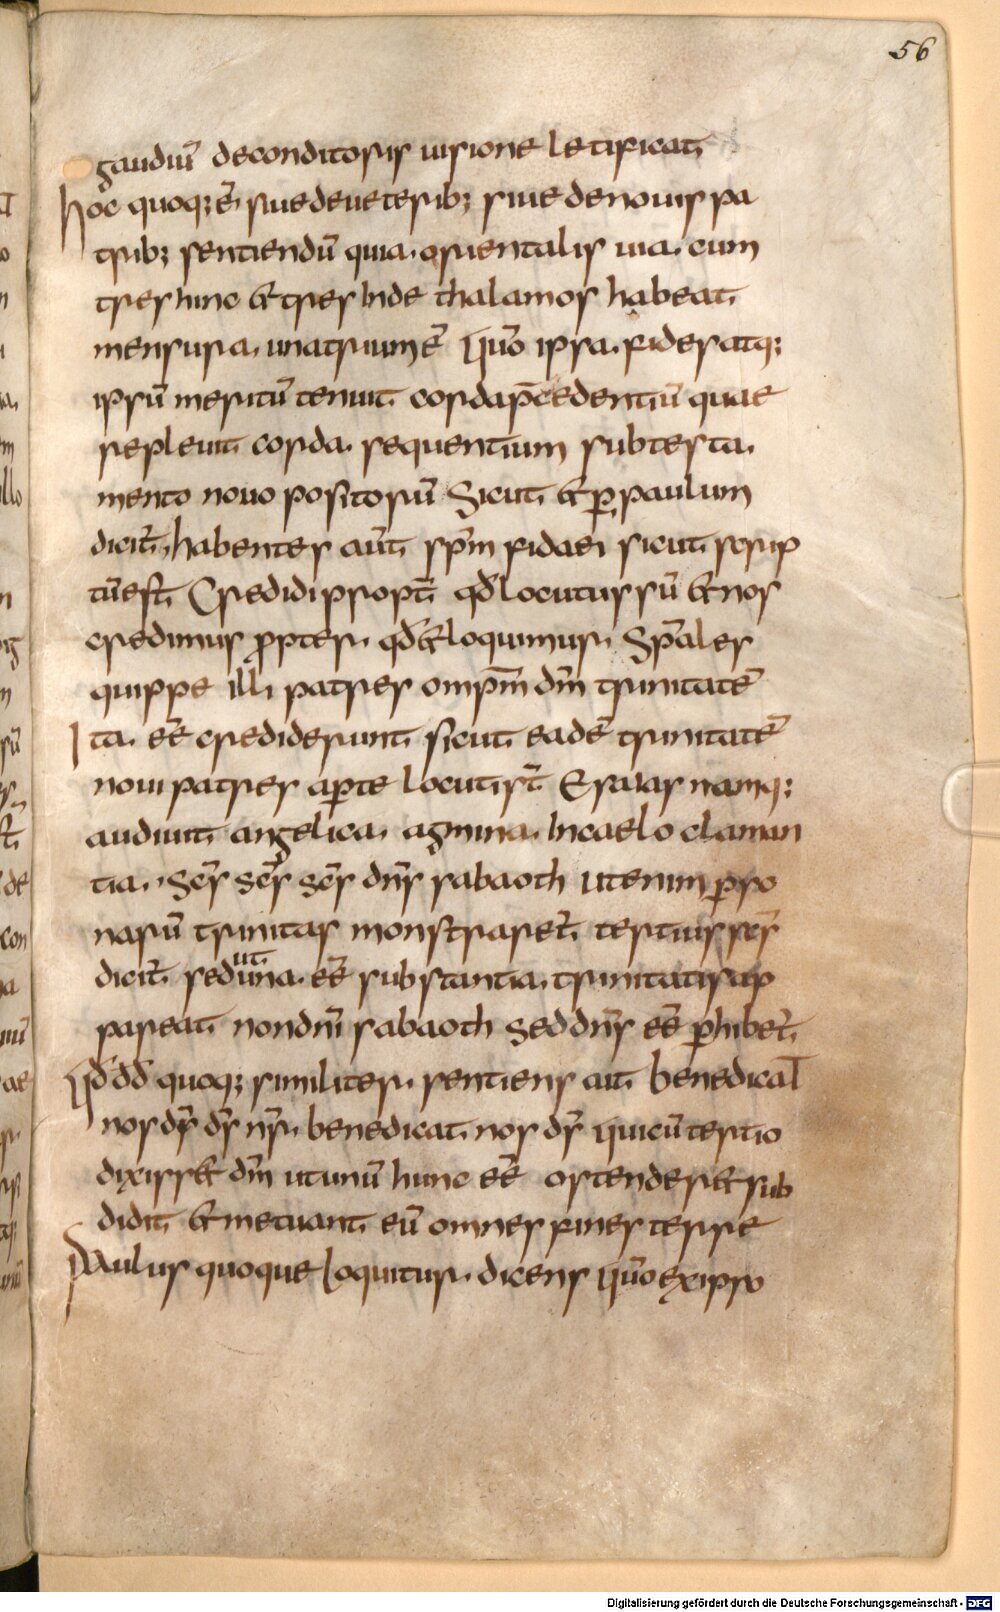 56
gaudiū deconditoris uisione letificat.
hoc quoq; ē. siue deueterib; siue denouis pa
trib; sentiendū quia. orientalis uia. cum
tres hinc & tres inde thalamos habeat.
mensura. una trium ē Quō ipsa. fides atq;
ipsū meritū tenuit. corda p̄cedentiū quae
repleuit. corda. sequentium sub testa.
mento nouo positorū Sicut. & p paulum
dicit̄. habentes aūt. sp̄m fidaei sicut scrip
tū est. Credidi propt̄ qđ locutus sū & nos
credimus propter. qđ & loquimur. Sp̄ales
quippe illi patres omp̄m dn̄m trinitatē
Ita. eē crediderunt. sicut. eadē trinitatē
noui patres aperte locuti st̄ Esaias namq;
audiuit. angelica. agmina. In caelo claman
tia. sc̄s sc̄s sc̄s dn̄s sabaoth ut enim perso
narū trinitas monstraret̄. tertius sc̄s
dicit̄. sed ut una. eē substantia. trinitatis ap
pareat. non dn̄i sabaoth sed dn̄s eē perhibet̄.
Qđ dđ quoq; similiter. sentiens ait. benedicat
nos dś dś nr̄. benedicat. nos dś Qui cū tertio
dixiss& dm̄ ut unū hunc eē ostender& sub
didit. & metuant. eū omnes fines terrae
Paulus quoque loquitur. dicens Quō ex ipso
Digitalisierung gefördert durch die Deutsche Forschungsgemeinschaft - DFG